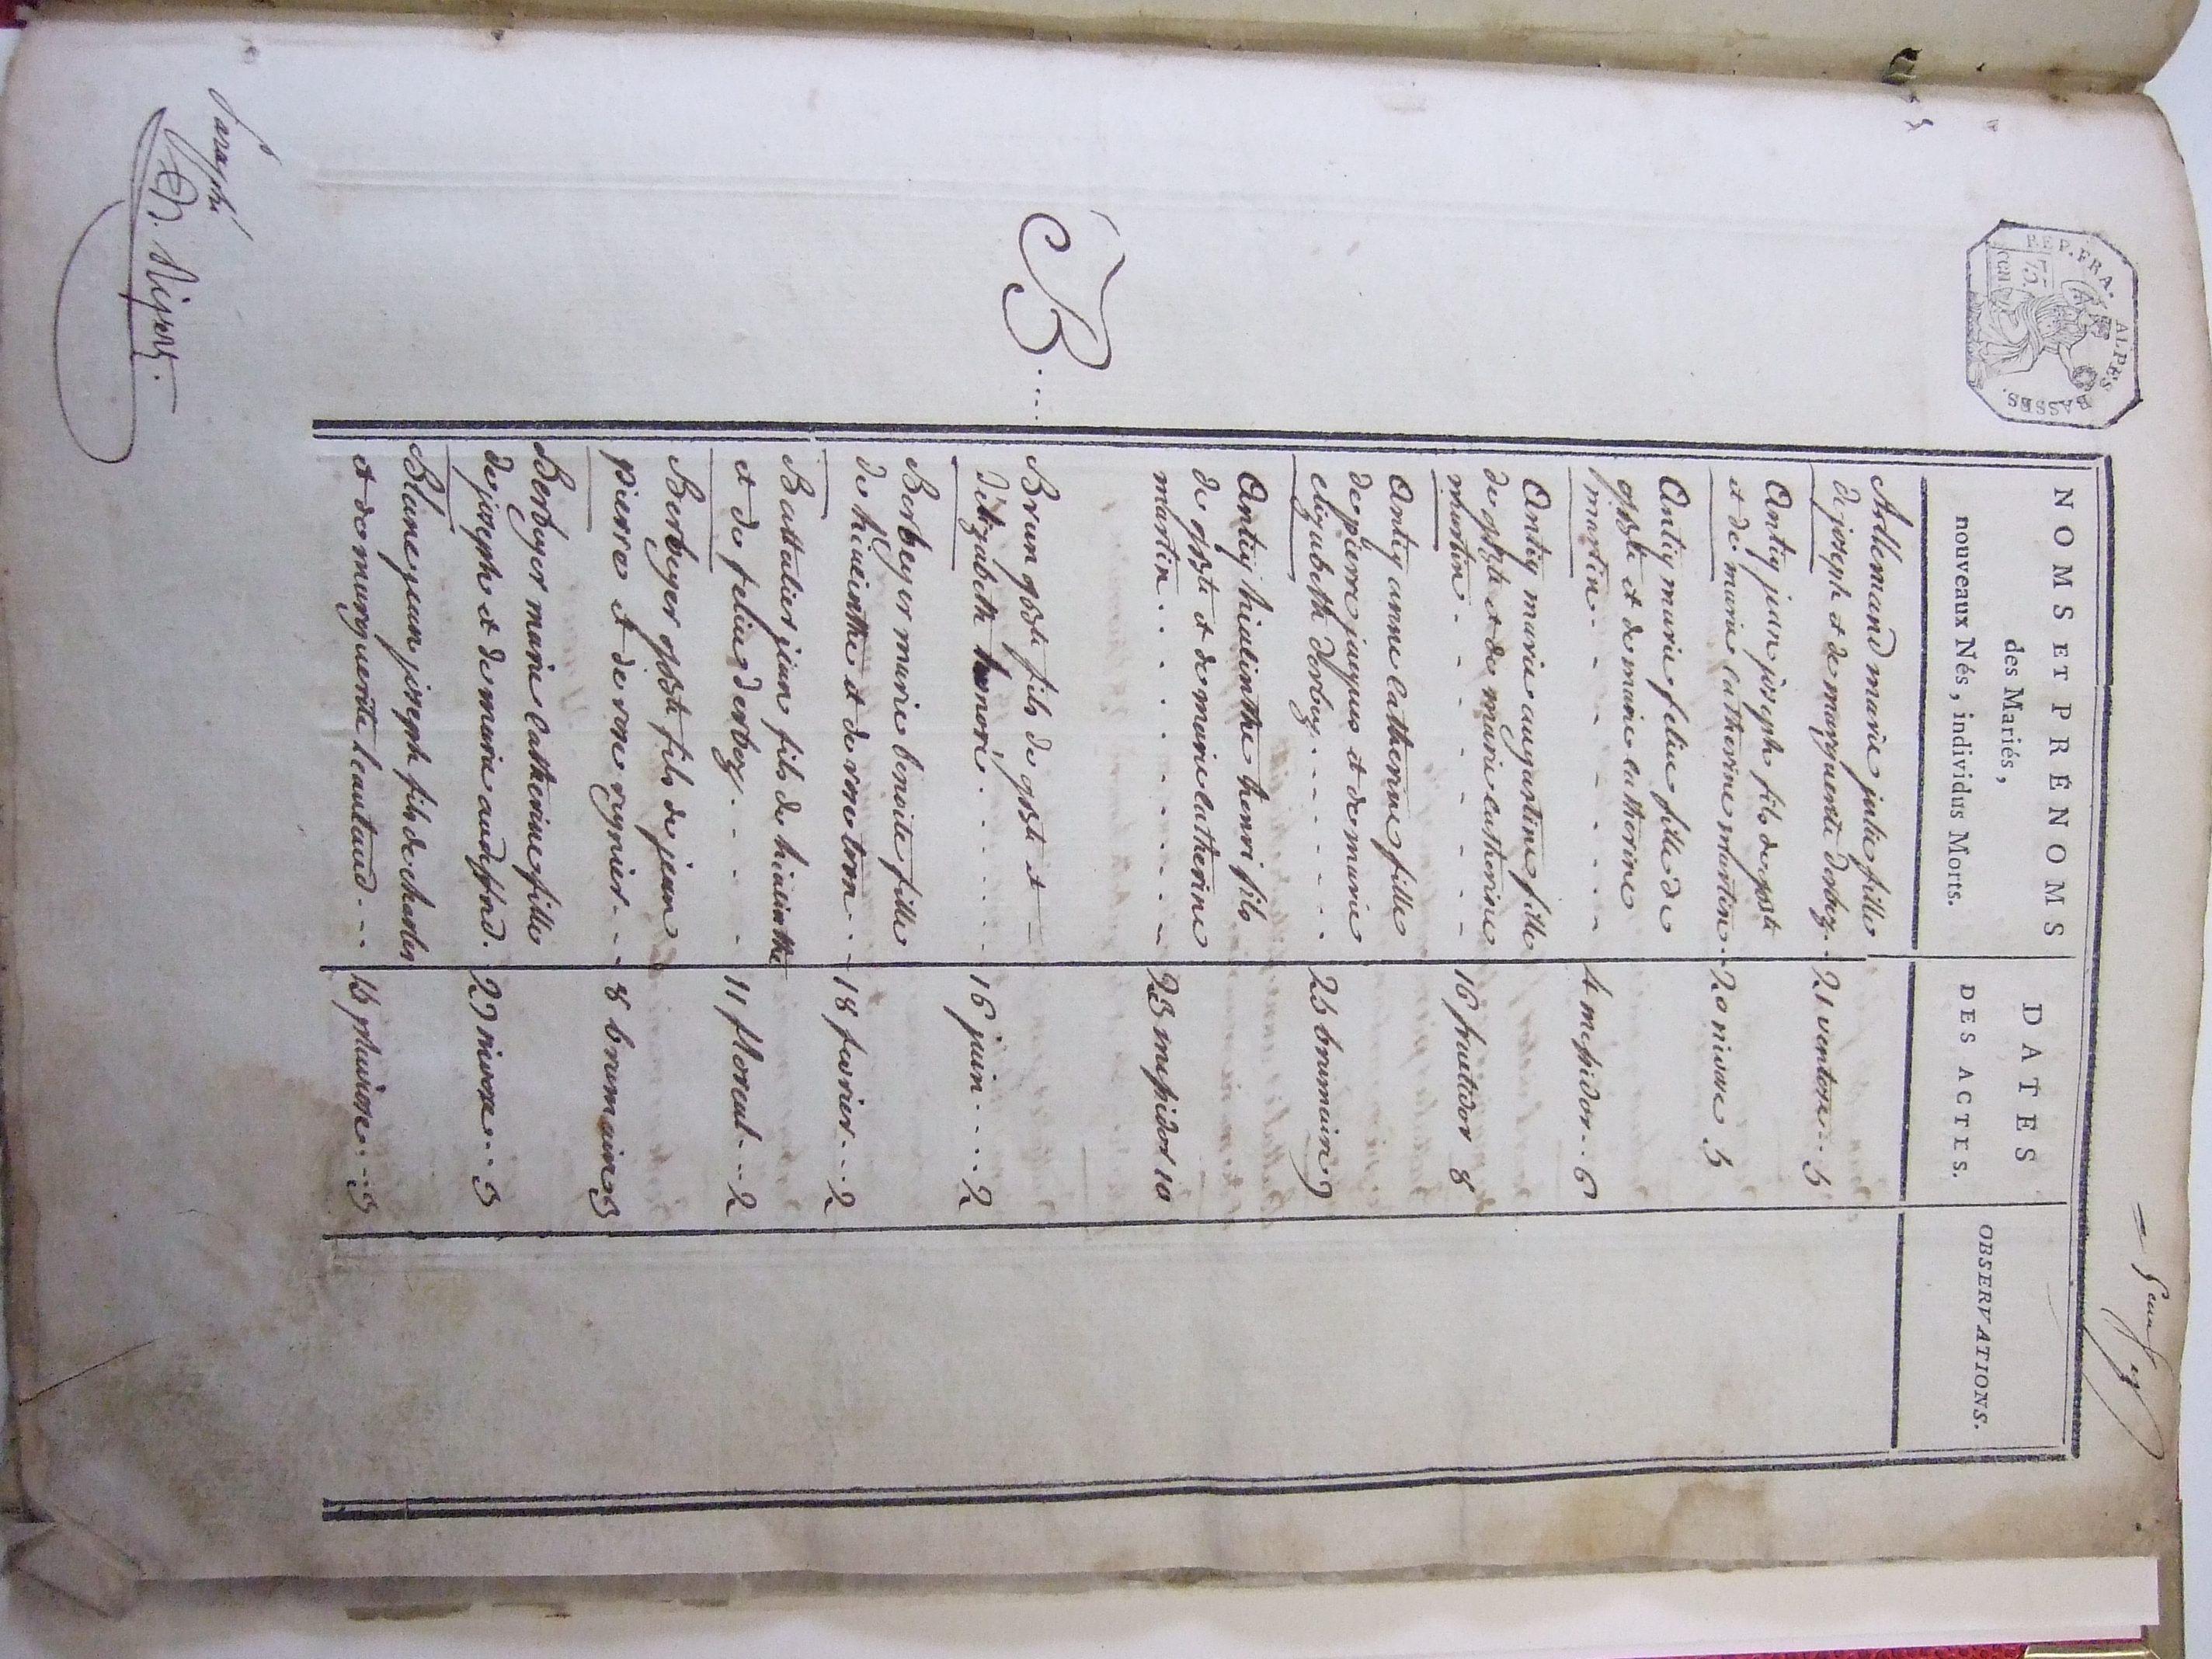 REP. FRA.
ALPES BASSES.
75
CEN
NOMS ET PRÉNOMS
des Mariés,
nouveaux Nés, individus Morts.
DATES
DES ACTES.
OBSERVATIONS.
Allemand marie julie fille
de joseph et de marguerite derbez. 21 ventose... 5
Antiq jean joseph fils de
et de marie catherine martin.. 20 nivose 5
Antiq marie felice fille de
et de marie catherine
martin. - - - - - 4 messidor.. 6
Antiq marie augustine fille
de et de marie catherine
martin. - - - - - 16 fructidor 8
Antiq anne catherine fille
de pierre jacques et de marie
elizabeth derbez. - - - - 25 brumaire 9
Antiq hiacinthe henri fils
de et de marie catherine
martin. . . . - - - - - 23 messidor 10
B....
Brun fils de et
d'elizabeth honoré. . . . . . 16 juin.... 2
Berbeyer marie benoite fille
de hiacinthe et de rose tron.. 18 fevrier... 2
Battalier jean fils de hiacinthe
et de felice derbez. . . . . 11 floreal... 2
Berbeyer fils de jean
pierre et de rose reynier. - - 8 brumaire 3
Berbeyer marie catherine fille
de joseph et de marie audiffred. 29 nivose... 3
Blanc jean joseph fils de charles
et de marguerite leautaud. - - 15 pluviose... 3
Paraphé